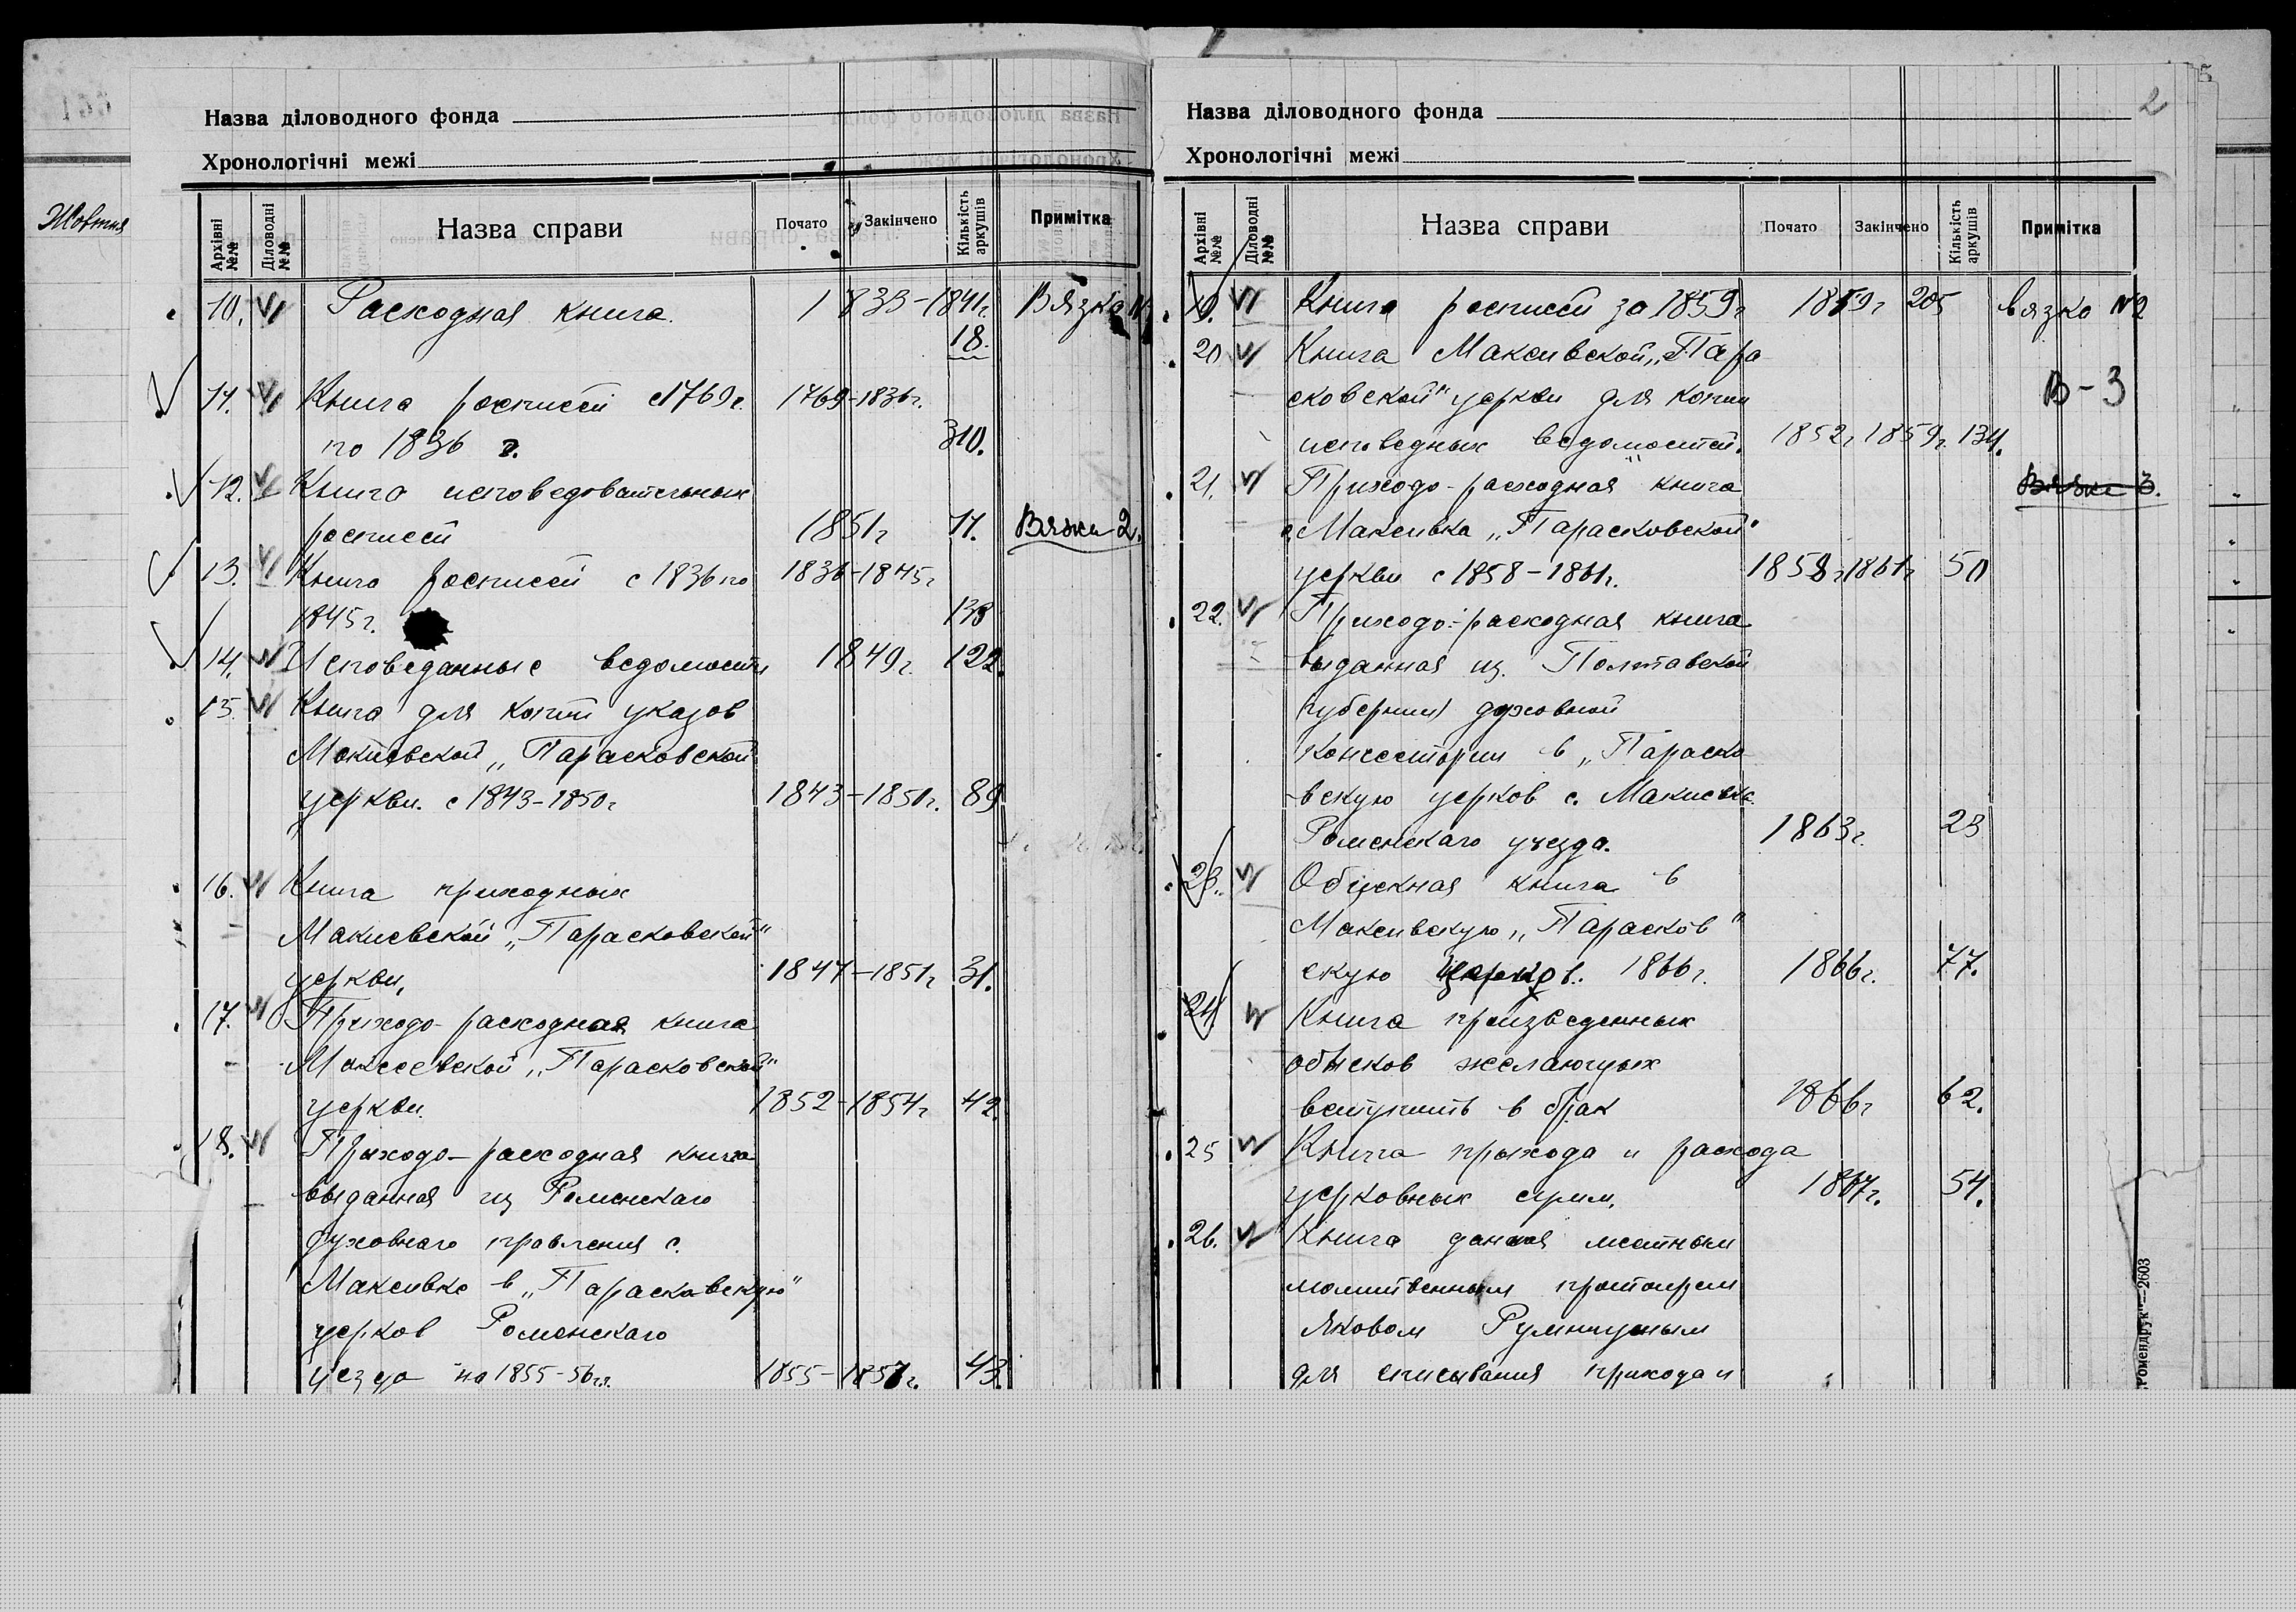 Жовтня
Назва діловодного фонда
Хронологічні межі
Архівні №№
Діловодні №№
Назва справи
Почато
Закінчено
Кількість аркушів
Примітка
10. Расходная книга. 1839-1841г. Вязка №1
18.
11. Книга росписей с 1769г. 1769-1836г.
по 1836 г. 310.
12. Книга исповедовательных
росписей 1851г 11. Вязки 2.
13. Книга росписей с 1836 по 1836-1845г
1845г. 138
14. Исповеданные ведомости 1849г. 122.
15. Книга для копии указов
Макиевской „Парасковской
церкви. с 1843-1850г 1843-1850г. 89
16. Книга приходных
Макиевской „Парасковской"
церкви, 1847-1851г 31.
17. Приходо-расходная книга
Макеевской „Парасковской"
церкви. 1852-1854г 42.
18. Приходо-расходная книга
выданная из Роменскаго
духовнаго правления с.
Макеивке в „Парасковскую"
церков Роменскаго
уезда на 1855-56г.г. 1855-1857г. 43.
2
Назва діловодного фонда
Хронологічні межі
Архівні №№
Діловодні №№
Назва справи
Почато
Закінчено
Кількість аркушів
Примітка
19. Книга росписей за 1859г 1859г 205 вязко №2
20 Книга Макеивской „Пара
сковской" церкви для копии В-3
исповедных ведомостей. 1852г 1859г. 134.
21. Приходо-расходная книга Вязка 3.
с. Макеивка „Парасковской"
церкви с 1858-1861г. 1858г 1861г 50
22. Приходо-расходная книга
выданная из Полтавской
губернии духовной
Консестории в „Параско
вскую церков с. Макиевка
Роменскаго уезда. 1863г. 23
23. Обыскная книга в
Макеивскую „Парасков"
скую церков. 1866г. 1866г. 77.
24. Книга произведенных
обысков желающых
вступить в брак 1866г 62.
25 Книга прихода и расхода
церковных сумм. 1867г. 54.
26. Книга данная местным
протоиереем
Яковом
для списывания прихода и
Ромендрук"—2603